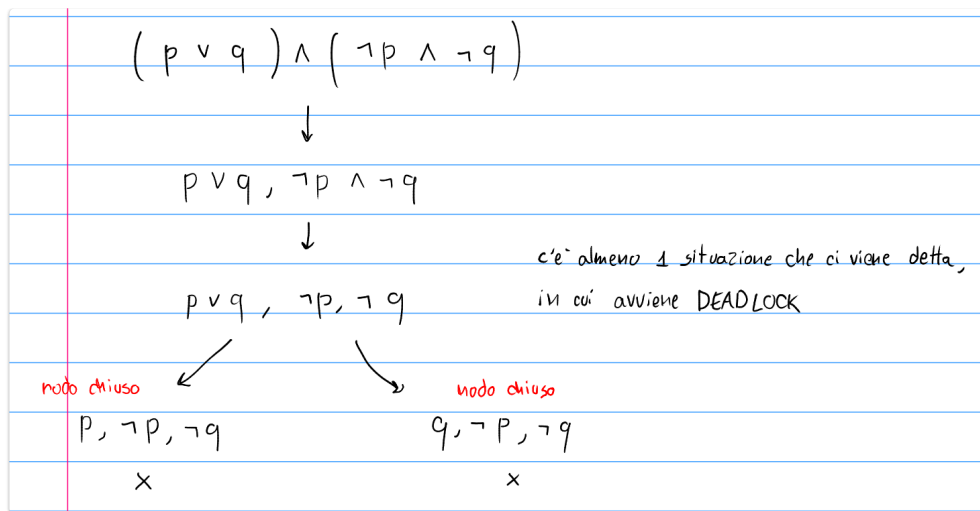 (p ∨ q) ∧ (¬p ∧ ¬q)
p ∨ q, ¬p ∧ ¬q
c'e' almeno 1 situazione che ci viene detta,
p ∨ q, ¬p, ¬q
in cui avviene DEADLOCK
nodo chiuso
nodo chiuso
p, ¬p, ¬q
q, ¬p, ¬q
x
x